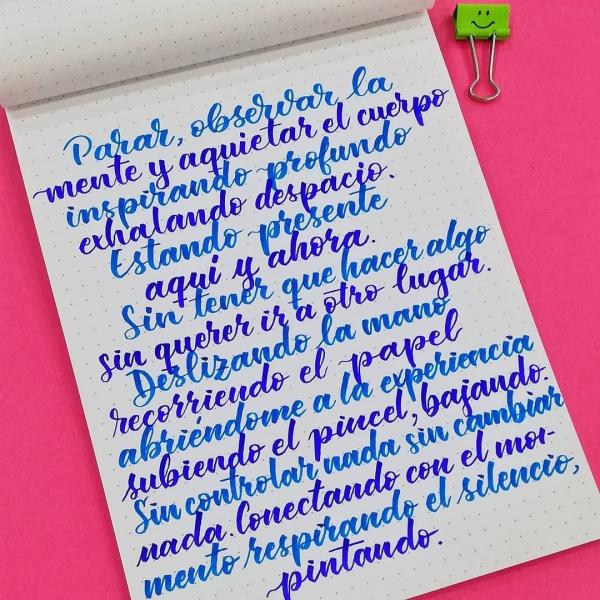 Parar, observar la
mente y aquietar el cuerpo
inspirando profundo
exhalando despacio.
Estando presente
aquí y ahora.
Sin tener que hacer algo
sin querer ir a otro lugar.
Deslizando la mano
recorriendo el papel
abriéndome a la experiencia
subiendo el pincel, bajando.
Sin controlar nada sin cambiar
nada. Conectando con el mo-
mento respirando el silencio,
pintando.